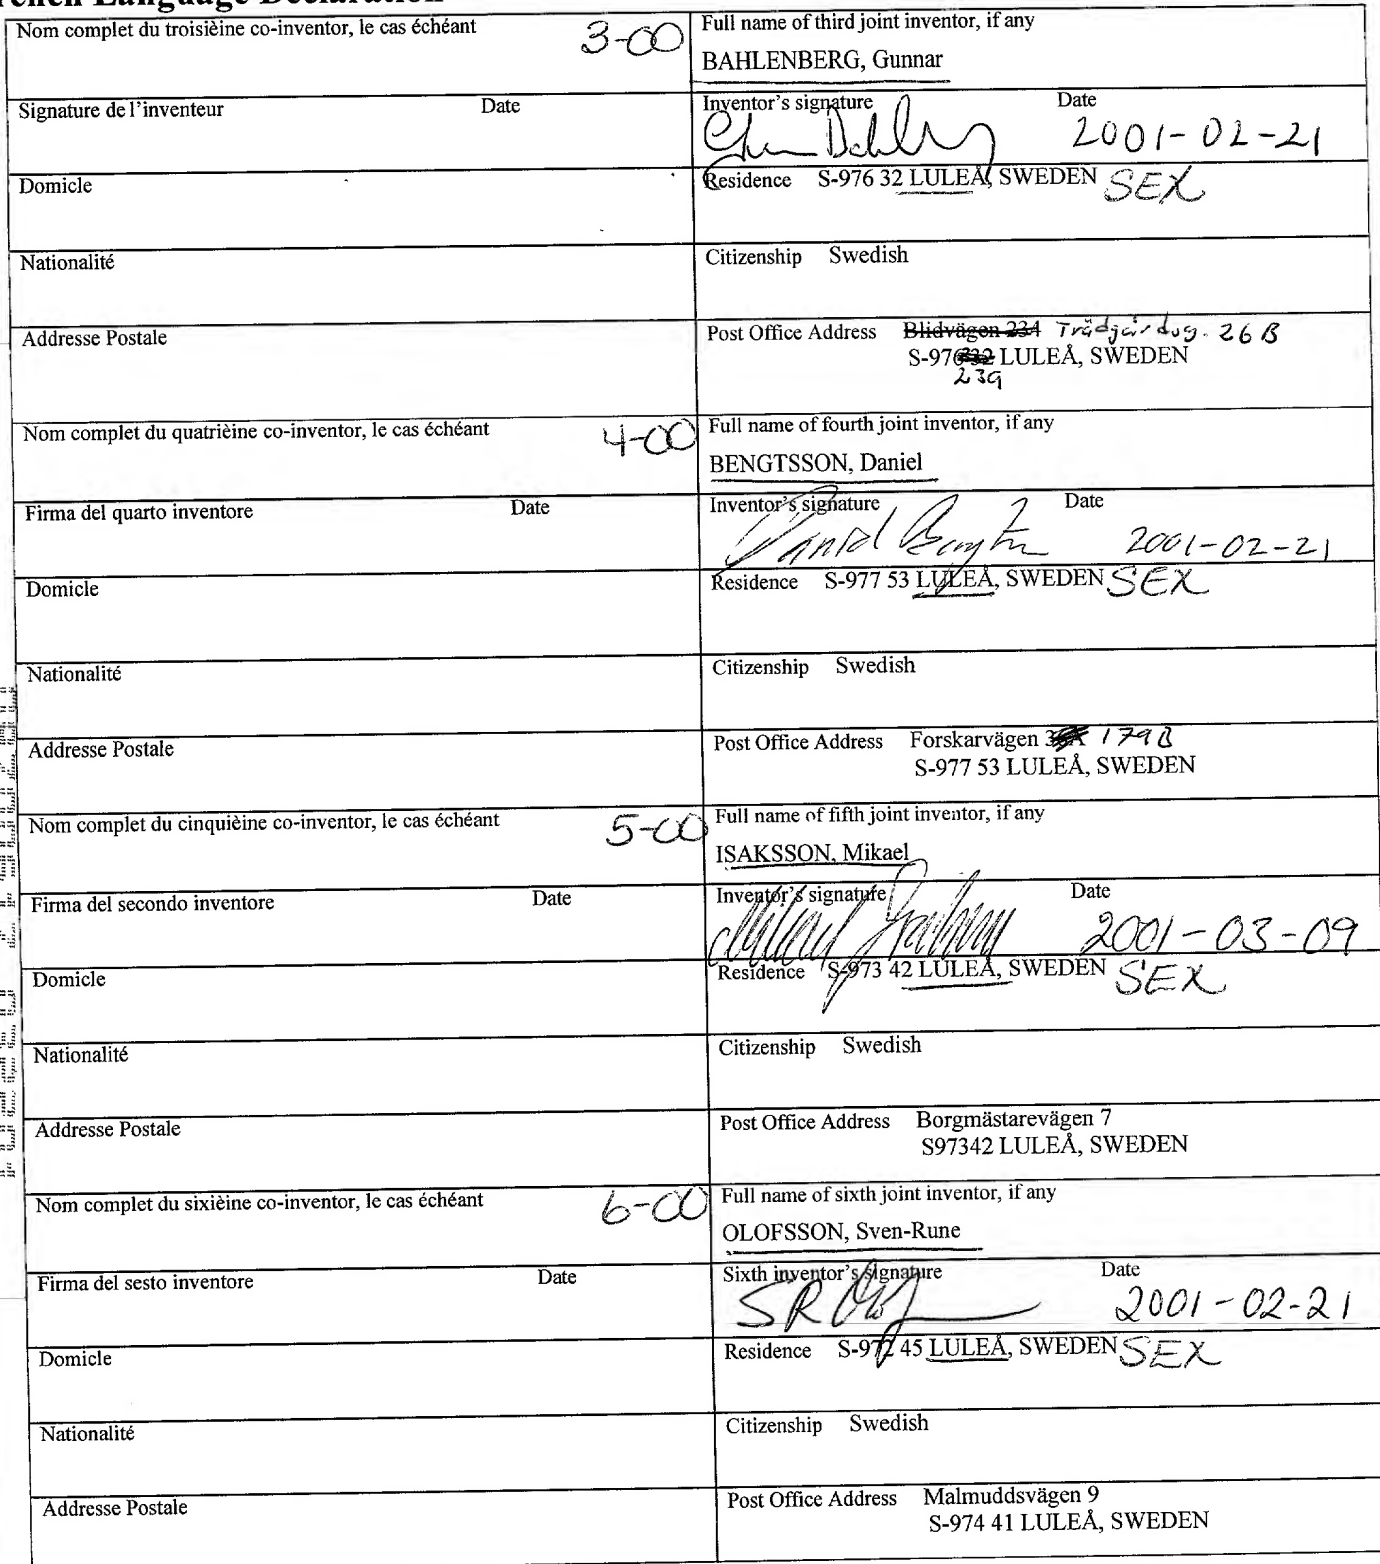 French Language Declaration
Nom complet du troisièine co-inventor, le cas échéant 3-00
Full name of third joint inventor, if any
BAHLENBERG, Gunnar
Signature de l'inventeur Date
Inventor's signature Date
2001-02-21
Domicile
Residence S-976 32 LULEÅ, SWEDEN SEX
Nationalité
Citizenship Swedish
Addresse Postale
Post Office Address Blidvägen 234 Trädgårdsg. 26 B
S-976 32 LULEÅ, SWEDEN
239
Nom complet du quatrièine co-inventor, le cas échéant 4-00
Full name of fourth joint inventor, if any
BENGTSSON, Daniel
Firma del quarto inventore Date
Inventor's signature Date
2001-02-21
Domicile
Residence S-977 53 LULEÅ, SWEDEN SEX
Nationalité
Citizenship Swedish
Addresse Postale
Post Office Address Forskarvägen 179B
S-977 53 LULEÅ, SWEDEN
Nom complet du cinquièine co-inventor, le cas échéant 5-00
Full name of fifth joint inventor, if any
ISAKSSON, Mikael
Firma del secondo inventore Date
Inventor's signature Date
2001-03-09
Domicile
Residence S-973 42 LULEÅ, SWEDEN SEX
Nationalité
Citizenship Swedish
Addresse Postale
Post Office Address Borgmästarevägen 7
S97342 LULEÅ, SWEDEN
Nom complet du sixièine co-inventor, le cas échéant 6-00
Full name of sixth joint inventor, if any
OLOFSSON, Sven-Rune
Firma del sesto inventore Date
Sixth inventor's signature Date
2001-02-21
Domicile
Residence S-972 45 LULEÅ, SWEDEN SEX
Nationalité
Citizenship Swedish
Addresse Postale
Post Office Address Malmuddsvägen 9
S-974 41 LULEÅ, SWEDEN